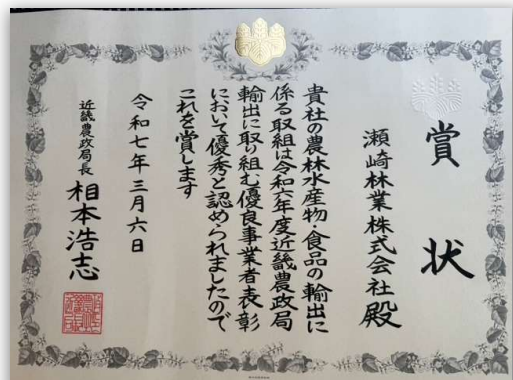 賞状
瀬崎林業株式会社殿
貴社の農林水産物・食品の輸出に
係る取組は令和六年度近畿農政局
輸出に取り組む優良事業者表彰
において優秀と認められましたので
これを賞します
令和七年三月六日
近畿農政局長 相本浩志